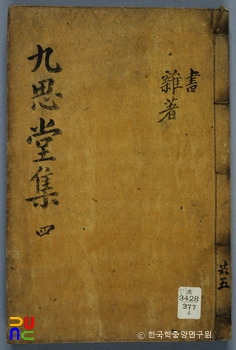 九思堂集 四
書
雜著
共五
3428
377
4
© 한국학중앙연구원